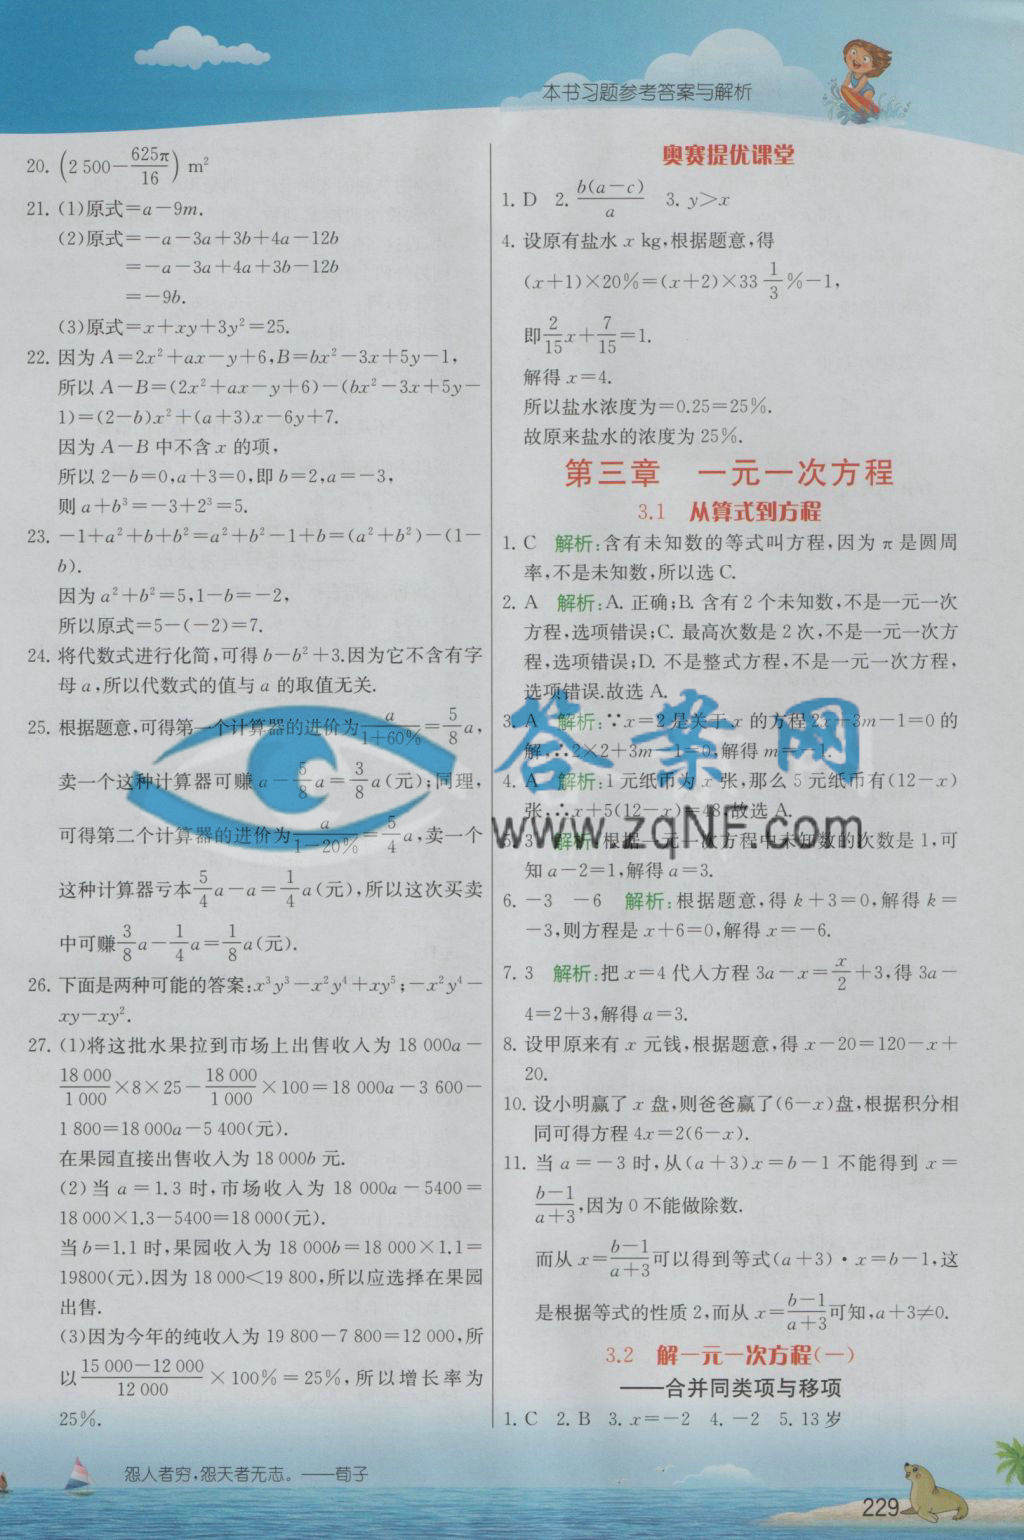 本书习题参考答案与解析
20. (2 500−625π/16) m²
21. (1)原式=a−9m.
(2)原式=−a−3a+3b+4a−12b
=−a−3a+4a+3b−12b
=−9b.
(3)原式=x+xy+3y²=25.
22. 因为 A=2x²+ax−y+6,B=bx²−3x+5y−1,
所以 A−B=(2x²+ax−y+6)−(bx²−3x+5y−
1)=(2−b)x²+(a+3)x−6y+7.
因为 A−B 中不含 x 的项,
所以 2−b=0,a+3=0,即 b=2,a=−3,
则 a+b³=−3+2³=5.
23. −1+a²+b+b²=a²+b²−1+b=(a²+b²)−(1−
b).
因为 a²+b²=5,1−b=−2,
所以原式=5−(−2)=7.
24. 将代数式进行化简,可得 b−b²+3.因为它不含有字
母 a,所以代数式的值与 a 的取值无关.
25. 根据题意,可得第一个计算器的进价为 a/(1+60%)=5/8 a,
卖一个这种计算器可赚 a−5/8 a=3/8 a(元);同理,
可得第二个计算器的进价为 a/(1−20%)=5/4 a,卖一个
这种计算器亏本 5/4 a−a=1/4 a(元),所以这次买卖
中可赚 3/8 a−1/4 a=1/8 a(元).
26. 下面是两种可能的答案:x³y³−x²y⁴+xy⁵;−x²y⁴−
xy−xy².
27. (1)将这批水果拉到市场上出售收入为 18 000a−
18 000/1 000×8×25−18 000/1 000×100=18 000a−3 600−
1 800=18 000a−5 400(元).
在果园直接出售收入为 18 000b 元.
(2)当 a=1.3 时,市场收入为 18 000a−5400=
18 000×1.3−5400=18 000(元).
当 b=1.1 时,果园收入为 18 000b=18 000×1.1=
19800(元).因为 18 000<19 800,所以应选择在果园
出售.
(3)因为今年的纯收入为 19 800−7 800=12 000,所
以 (15 000−12 000)/12 000×100%=25%,所以增长率为
25%.
奥赛提优课堂
1. D 2. b(a−c)/a 3. y>x
4. 设原有盐水 x kg,根据题意,得
(x+1)×20%=(x+2)×33 1/3%−1,
即 2/15 x+7/15=1.
解得 x=4.
所以盐水浓度为=0.25=25%.
故原来盐水的浓度为 25%.
第三章 一元一次方程
3.1 从算式到方程
1. C 解析:含有未知数的等式叫方程,因为 π 是圆周
率,不是未知数,所以选 C.
2. A 解析:A. 正确;B. 含有 2 个未知数,不是一元一次
方程,选项错误;C. 最高次数是 2 次,不是一元一次方
程,选项错误;D. 不是整式方程,不是一元一次方程,
选项错误.故选 A.
3. A 解析:∵x=2 是关于 x 的方程 2x+3m−1=0 的
解,∴2×2+3m−1=0,解得 m=−1.
4. A 解析:1 元纸币为 x 张,那么 5 元纸币有(12−x)
张,∴x+5(12−x)=48,故选 A.
5. 3 解析:根据一元一次方程中未知数的次数是 1,可
知 a−2=1,解得 a=3.
6. −3 −6 解析:根据题意,得 k+3=0,解得 k=
−3,则方程是 x+6=0,解得 x=−6.
7. 3 解析:把 x=4 代入方程 3a−x=x/2+3,得 3a−
4=2+3,解得 a=3.
8. 设甲原来有 x 元钱,根据题意,得 x−20=120−x+
20.
10. 设小明赢了 x 盘,则爸爸赢了(6−x)盘,根据积分相
同可得方程 4x=2(6−x).
11. 当 a=−3 时,从(a+3)x=b−1 不能得到 x=
(b−1)/(a+3),因为 0 不能做除数.
而从 x=(b−1)/(a+3)可以得到等式(a+3)·x=b−1,这
是根据等式的性质 2,而从 x=(b−1)/(a+3)可知,a+3≠0.
3.2 解一元一次方程(一)
——合并同类项与移项
1. C 2. B 3. x=−2 4. −2 5. 13 岁
答案网
www.zqNF.com
怨人者穷,怨天者无志。——荀子
229